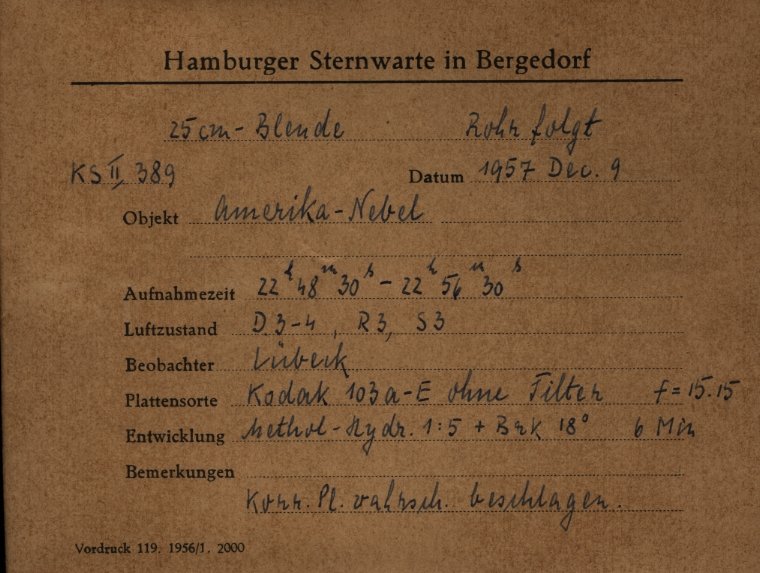 Hamburger Sternwarte in Bergedorf
25cm-Blende Rohr folgt
KS II, 389 Datum 1957 Dec. 9
Objekt Amerika-Nebel
Aufnahmezeit 22h 48m 30s - 22h 56m 30s
Luftzustand D 3-4, R3, S3
Beobachter Lübeck
Plattensorte Kodak 103a-E ohne Filter f = 15.15
Entwicklung Methol-Hydr. 1:5 + BrK 18° 6 Min
Bemerkungen
Korr. Pl. wahrsch. beschlagen.
Vordruck 119. 1956/1. 2000